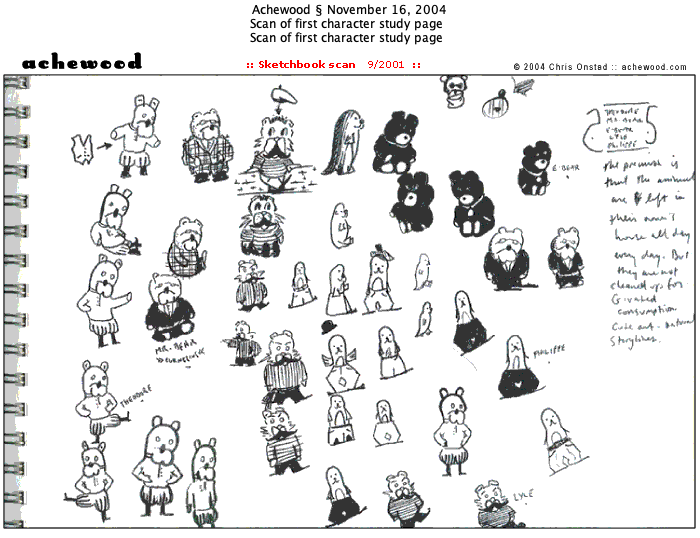 Achewood § November 16, 2004
Scan of first character study page
Scan of first character study page
achewood
:: Sketchbook scan 9/2001 ::
© 2004 Chris Onstad :: achewood.com
THEODORE
MR. BEAR
E-BEAR
LYLE
PHILIPPE
E-BEAR
The premise is
that the animals
are left in
their owner's
house all day
every day. But
they are not
cleaned up for
G-rated
consumption
Cute art - natural
storylines.
MR. BEAR
PHILIPPE
THEODORE
LYLE